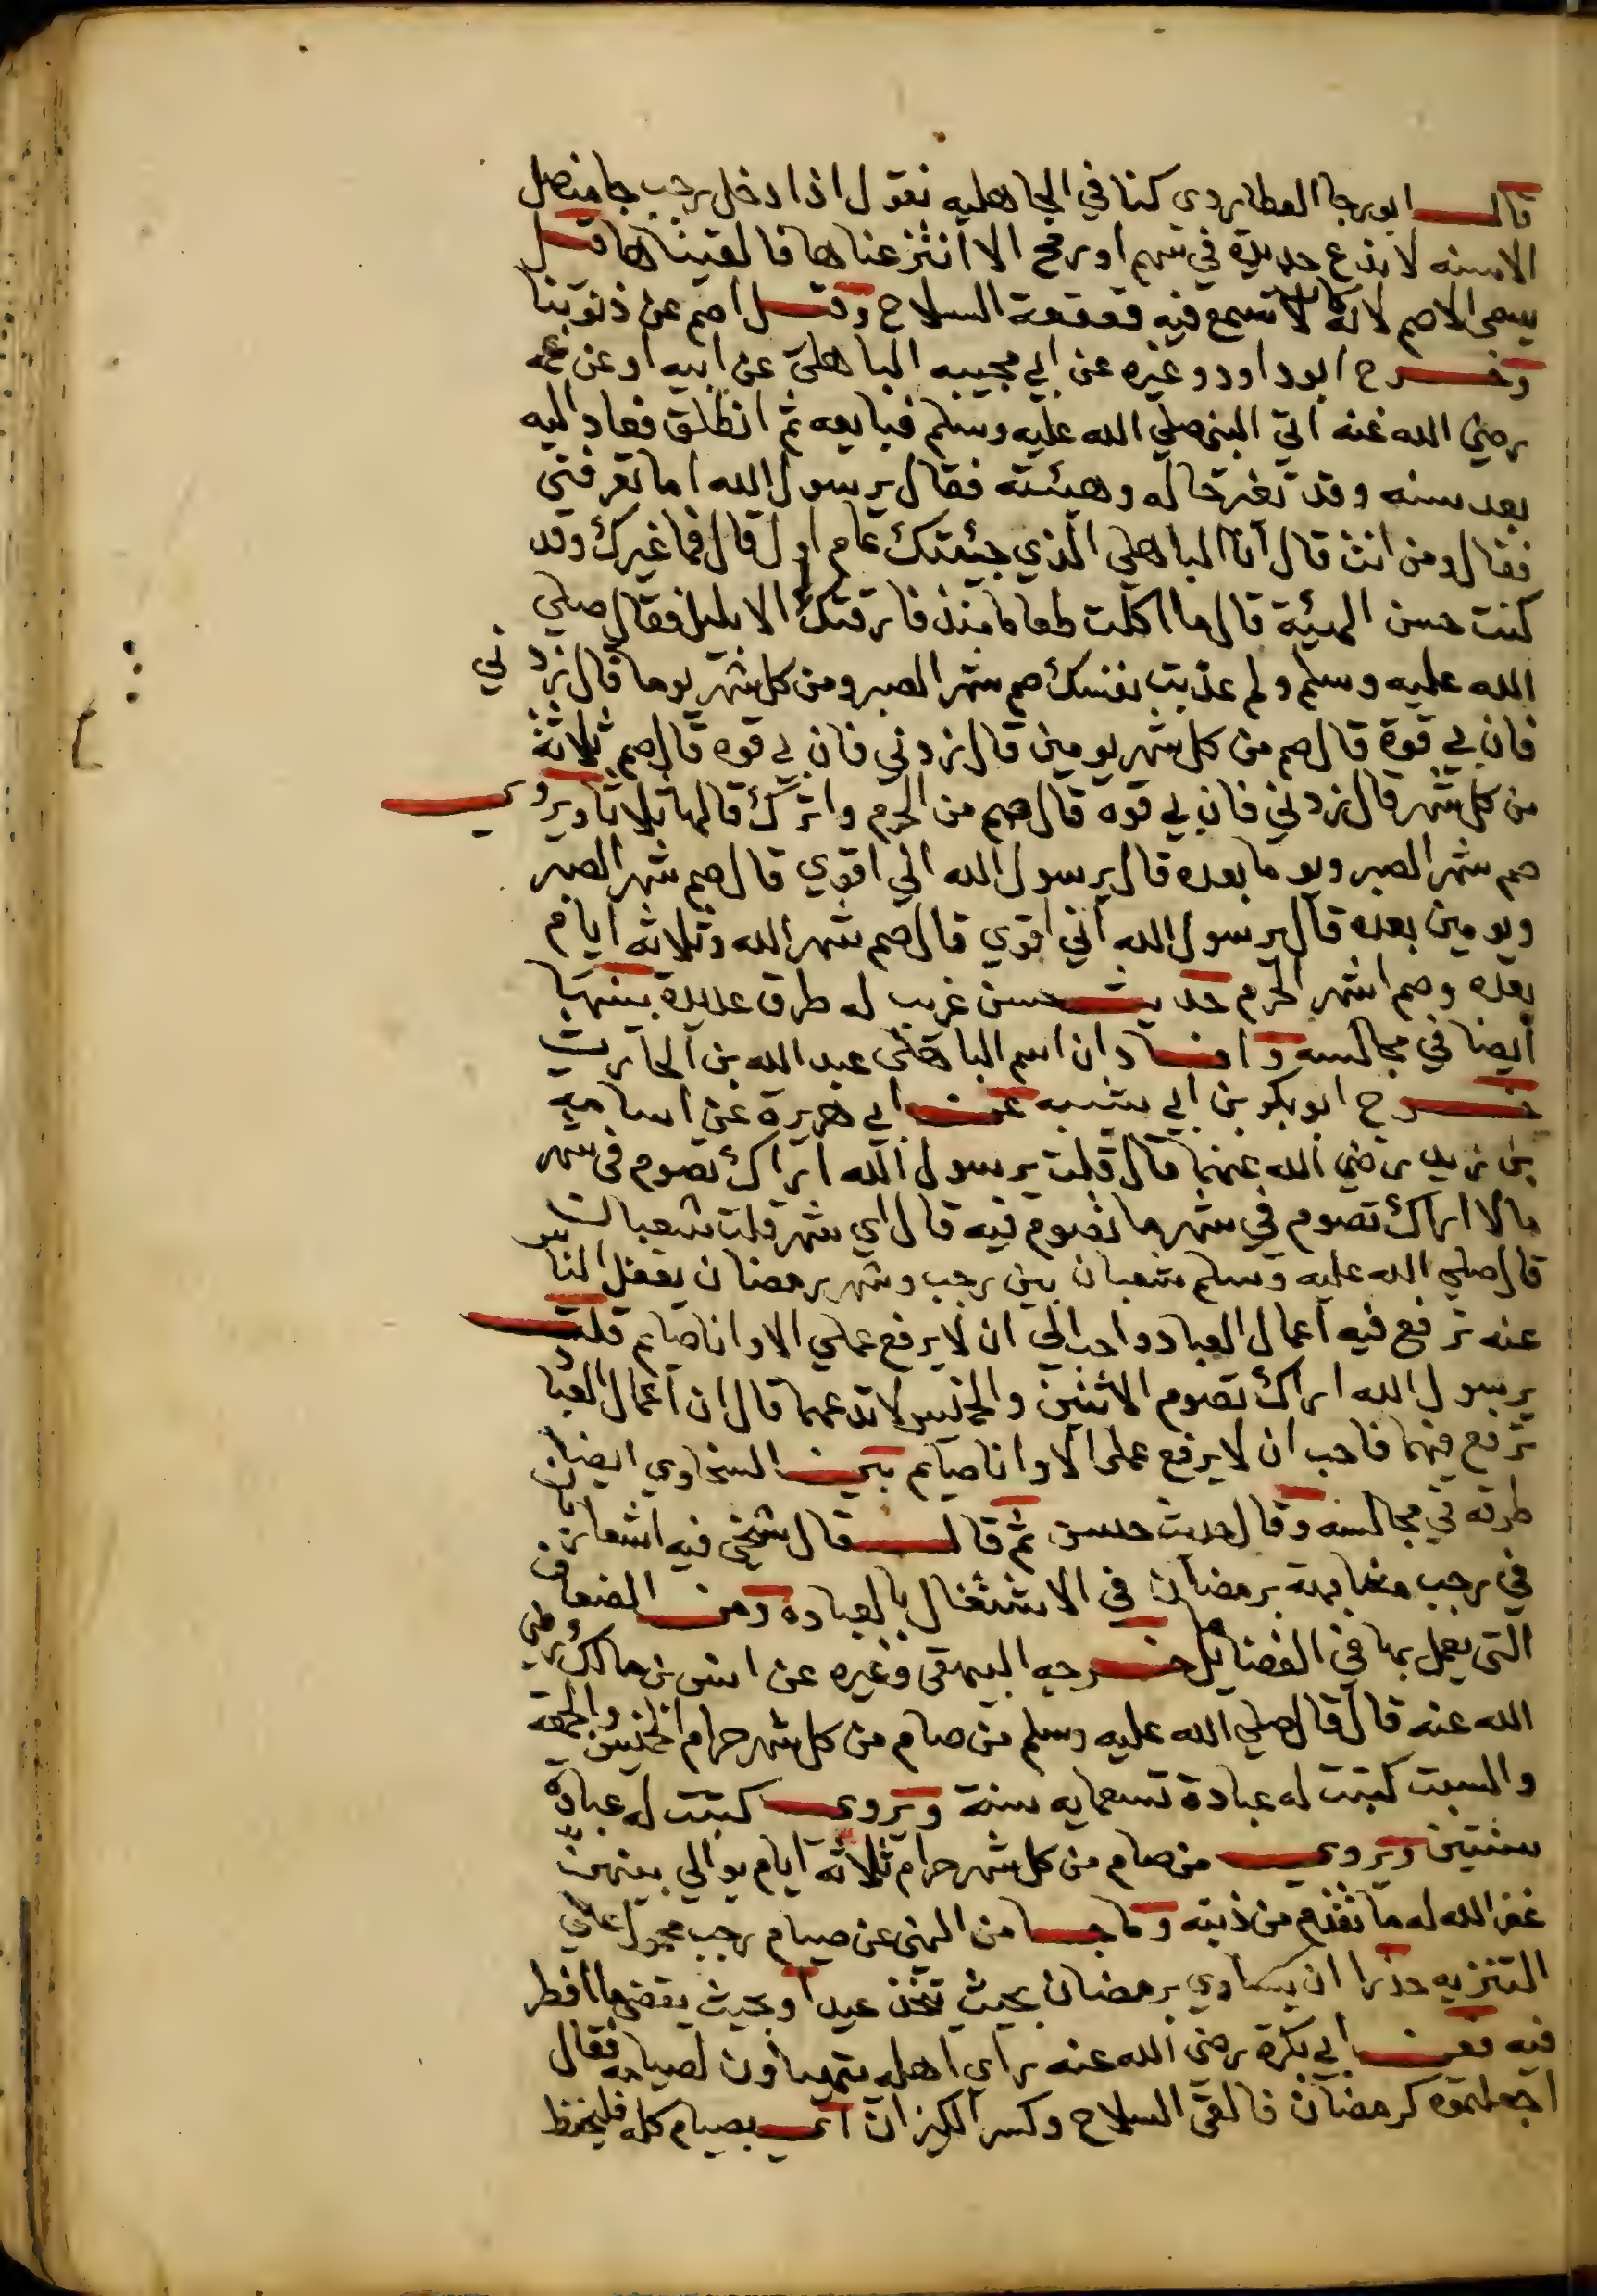 قال ابورجا العطاردي كنا في الجاهليه نقول اذا دخل رجب جا منصل
الاسنه لا ندع حديدة في سهم او رمح الا انتزعناها فالقيناها قيل
يسمى الاصم لانه كان لا تسمع فيه قعقعة السلاح وقيل اصم عن ذنوبنا
وخرج ابو داود وغيره عن ابي مجيبه الباهلي عن ابيه او عن عمه
رضي الله عنه اتي النبي صلي الله عليه وسلم فبايعه ثم انطلق فعاد اليه
بعد سنه وقد تغير حاله وهيئته فقال يرسول الله اما تعرفني
فقال ومن انت قال انا الباهلي الذي جيئتك عام اول قال فما غيرك وقد
كنت حسن الهيئة قال ما اكلت طعاما منذ فارقتك الا بليل فقال صلي
الله عليه وسلم ولم عذبت نفسك صم شهر الصبر ومن كل شهر يوما قال زدني
فان بي قوة قال صم من كل شهر يومين قال زدني فان بي قوه قال صم ثلاثة
من كل شهر قال زدني فان بي قوه قال صم من الحرم واترك قالها ثلاثا ويروي
صم شهر الصبر ويوما بعده قال يرسول الله اني اقوي قال صم شهر الصبر
ويومين بعده قال يرسول الله اني اقوي قال صم شهر الله وثلاثه ايام
بعده وصم اشهر الحرم حديث حسن غريب له طرق عديدة بينتها
ايضا في مجالسه وافاد ان اسم الباهلي عبد الله بن الحارث
خرج ابو بكر بن ابي شيبه عن ابي هريرة عن اسامه
بن زيد رضي الله عنهما قال قلت يرسول الله اراك تصوم في شهر
ما لا اراك تصوم في شهر ما تصوم فيه قال اي شهر قلت شعبان
قال صلي الله عليه وسلم شعبان بين رجب وشهر رمضان يغفل الناس
عنه ترفع فيه اعمال العباد واحب الي ان لا يرفع عملي الا وانا صايم قلت
يرسول الله اراك تصوم الاثنين والخميس لا تدعهما قال ان اعمال العباد
ترفع فيهما فاحب ان لا يرفع عملي الا وانا صايم بين السخاوي ايضا
طرقه في مجالسه وقال حديث حسن ثم قال قال شيخي فيه اشعار بان
في رجب مشابهة برمضان في الاشتغال بالعباده ومن الضعاف
التي يعمل بها في الفضايل ما خرجه البيهقي وغيره عن انس بن مالك رضي
الله عنه قال قال صلي الله عليه وسلم من صام من كل شهر حرام الخميس والجمعة
والسبت كتبت له عبادة تسعمايه سنة ويروي كتبت له عبادة
سنتين ويروي من صام من كل شهر حرام ثلاثة ايام يوالي بينهن
غفر الله له ما تقدم من ذنبه وما جا من النهي عن صيام رجب محمول علي
التنزيه حذرا ان يساوي برمضان بحيث تتخذ عيدا وبحيث يقضي ما افطر
فيه فعن ابي بكرة رضي الله عنه راي اهله يتهياون لصيامه فقال
اجعلتموه كرمضان فالقي السلاح وكسر الكيزان اي بصيام كله فليحفظ